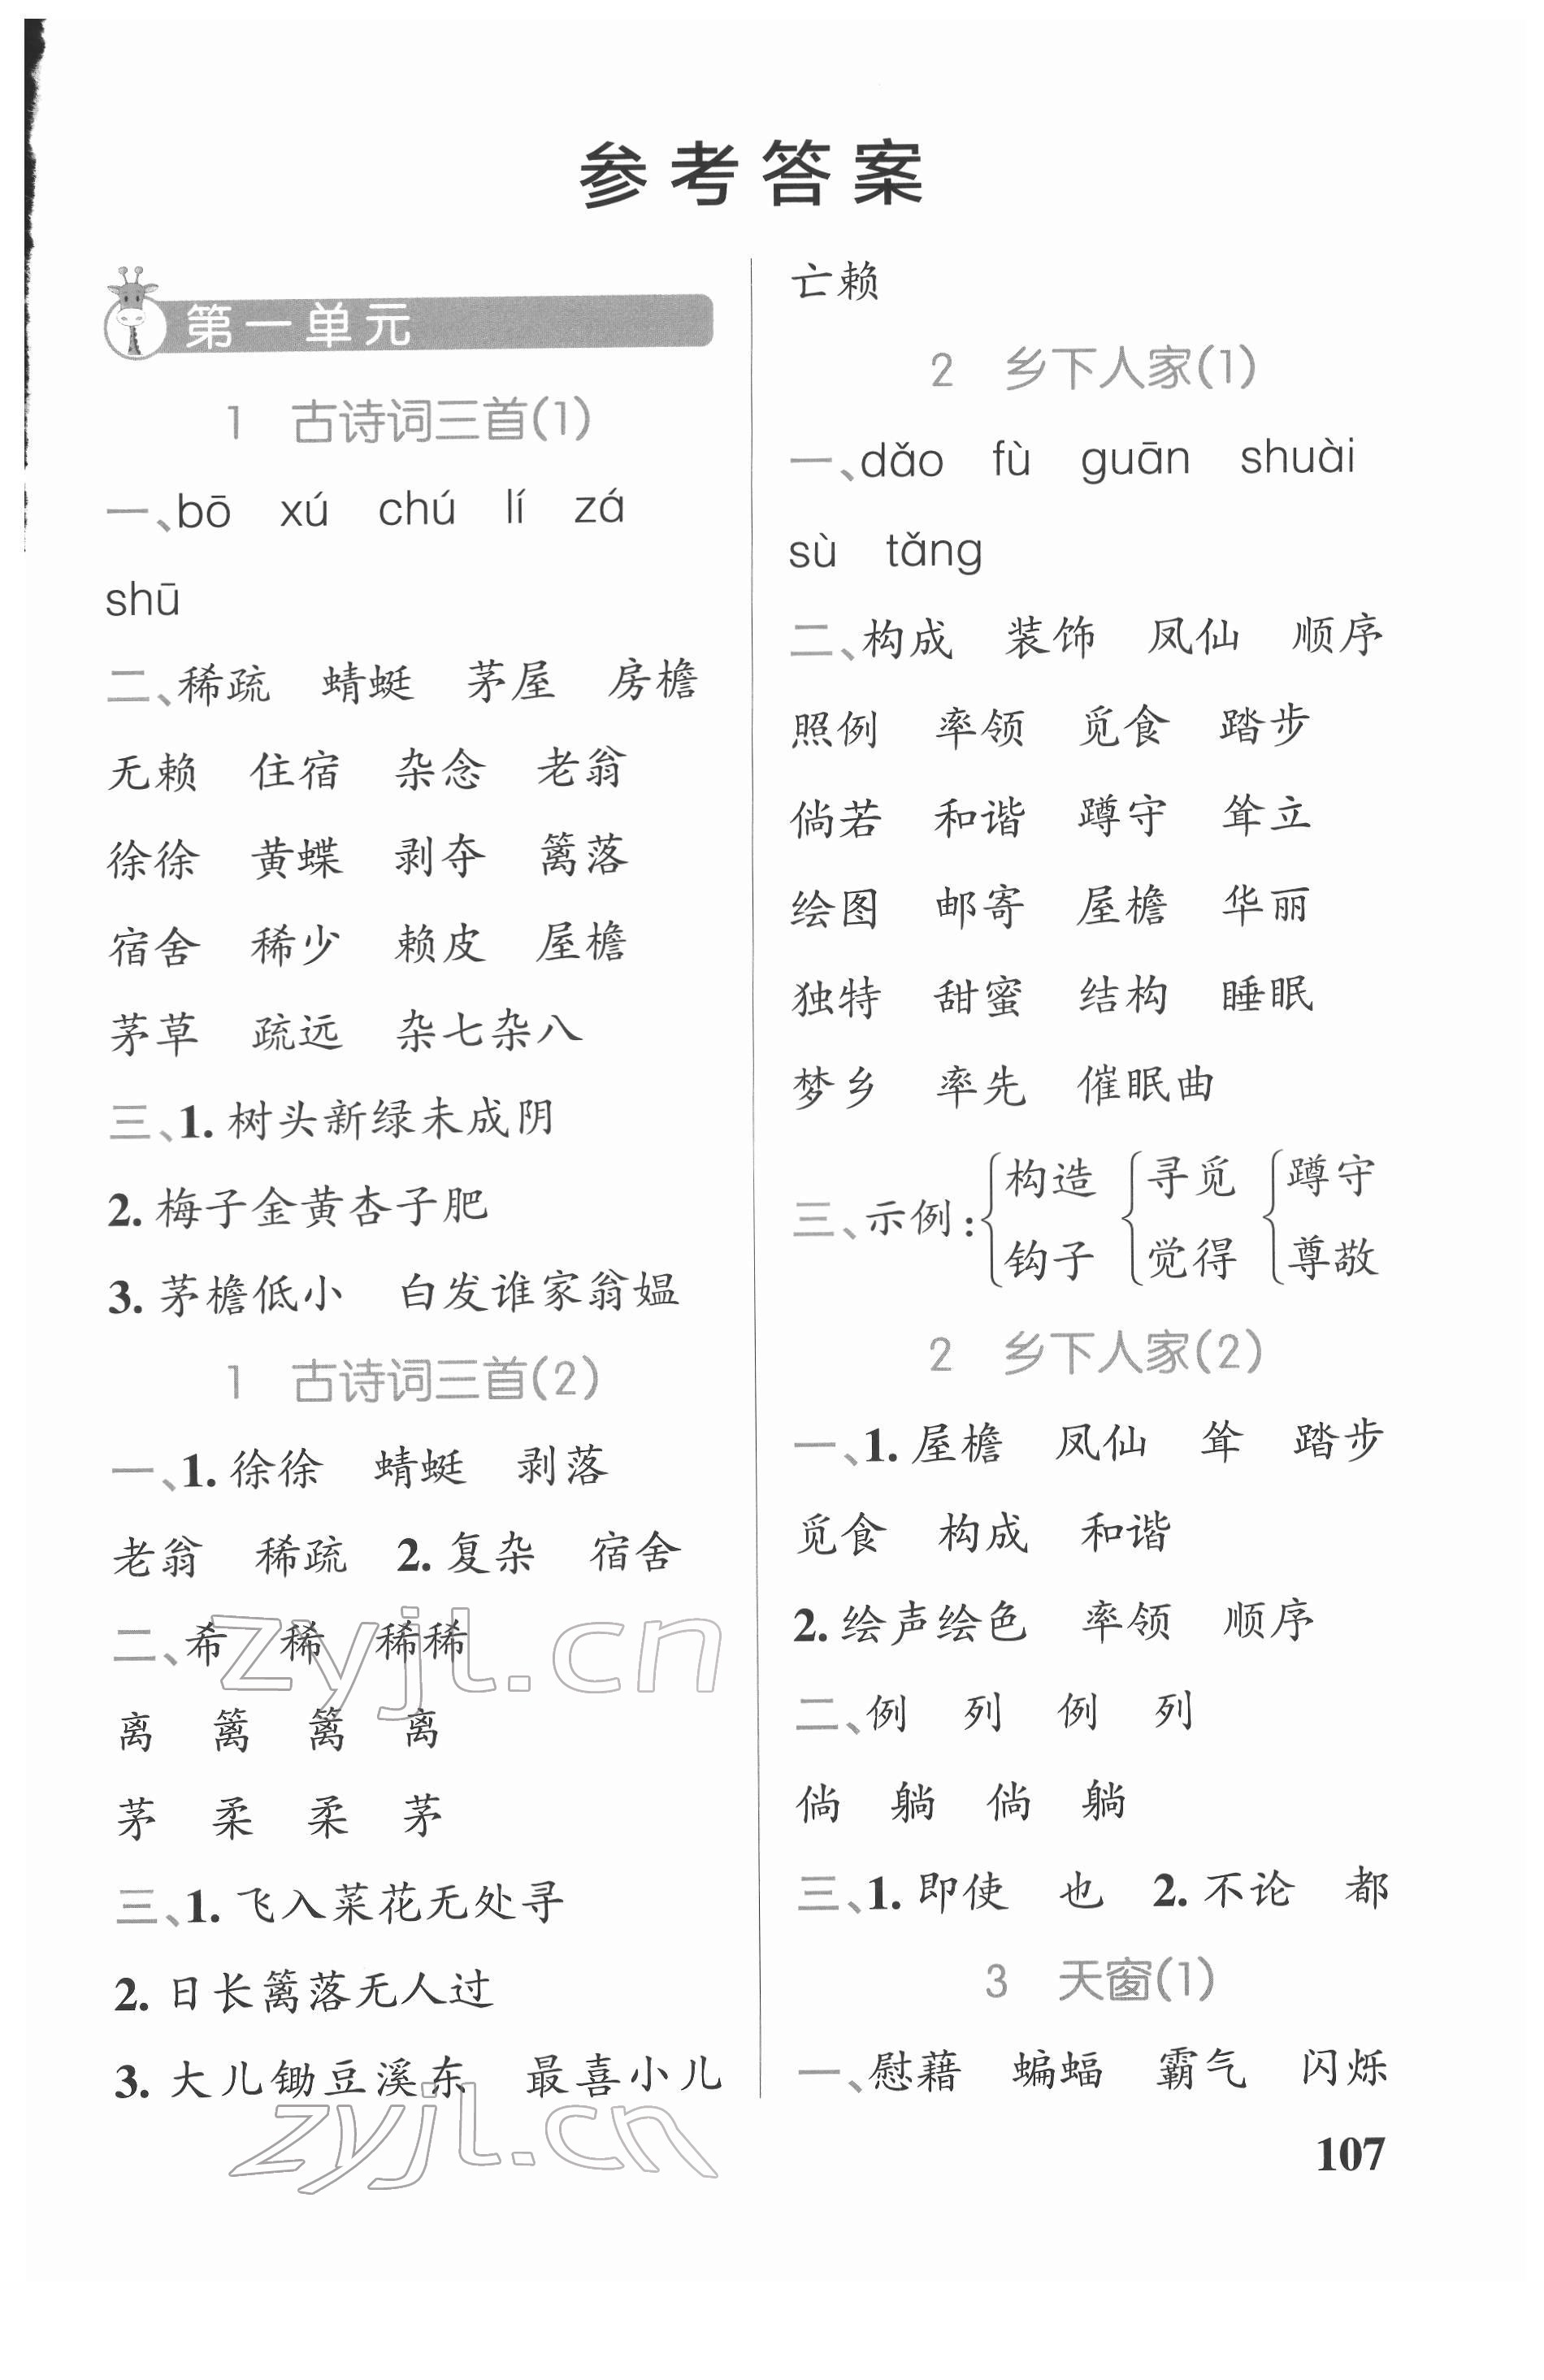 参考答案
第一单元
1 古诗词三首(1)
一、bō xú chú lí zá
shū
二、稀疏 蜻蜓 茅屋 房檐
无赖 住宿 杂念 老翁
徐徐 黄蝶 剥夺 篱落
宿舍 稀少 赖皮 屋檐
茅草 疏远 杂七杂八
三、1. 树头新绿未成阴
2. 梅子金黄杏子肥
3. 茅檐低小 白发谁家翁媪
1 古诗词三首(2)
一、1. 徐徐 蜻蜓 剥落
老翁 稀疏 2. 复杂 宿舍
二、希 稀 稀稀
离 篱 篱 离
茅 柔 柔 茅
三、1. 飞入菜花无处寻
2. 日长篱落无人过
3. 大儿锄豆溪东 最喜小儿
亡赖
2 乡下人家(1)
一、dǎo fù guān shuài
sù tǎng
二、构成 装饰 凤仙 顺序
照例 率领 觅食 踏步
倘若 和谐 蹲守 耸立
绘图 邮寄 屋檐 华丽
独特 甜蜜 结构 睡眠
梦乡 率先 催眠曲
三、示例:{构造 {寻觅 {蹲守
钩子 觉得 尊敬
2 乡下人家(2)
一、1. 屋檐 凤仙 耸 踏步
觅食 构成 和谐
2. 绘声绘色 率领 顺序
二、例 列 例 列
倘 躺 倘 躺
三、1. 即使 也 2. 不论 都
3 天窗(1)
一、慰藉 蝙蝠 霸气 闪烁
107
zyjl.cn
zyjl.cn